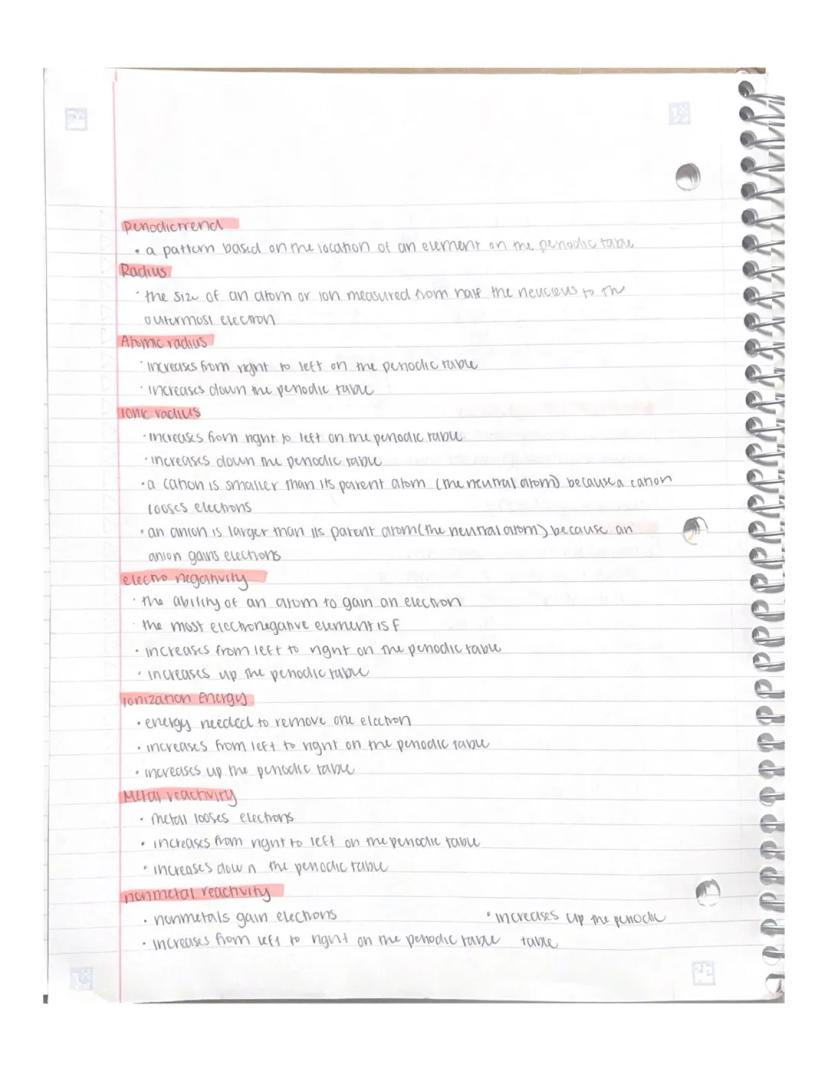 Periodic trend
• a pattern based on the location of an element on the periodic table
Radius
• the size of an atom or ion measured from half the neucleus to the
outermost electron
Atomic radius
• increases from right to left on the periodic table
• increases down the periodic table
Ionic radius
• increases from right to left on the periodic table
• increases down the periodic table
• a cation is smaller than its parent atom (the neutral atom) because a cation
looses electrons
• an anion is larger than its parent atom (the neutral atom) because an
anion gains electrons
electro negativity
• the ability of an atom to gain an electron
• the most electronegative element is F
• increases from left to right on the periodic table
• increases up the periodic table
Ionization Energy
• energy needed to remove one electron
• increases from left to right on the periodic table
• increases up the periodic table
Metal reactivity
• metal looses electrons
• increases from right to left on the periodic table
• increases down the periodic table
nonmetal reactivity
• nonmetals gain electrons • increases up the periodic
• increases from left to right on the periodic table table